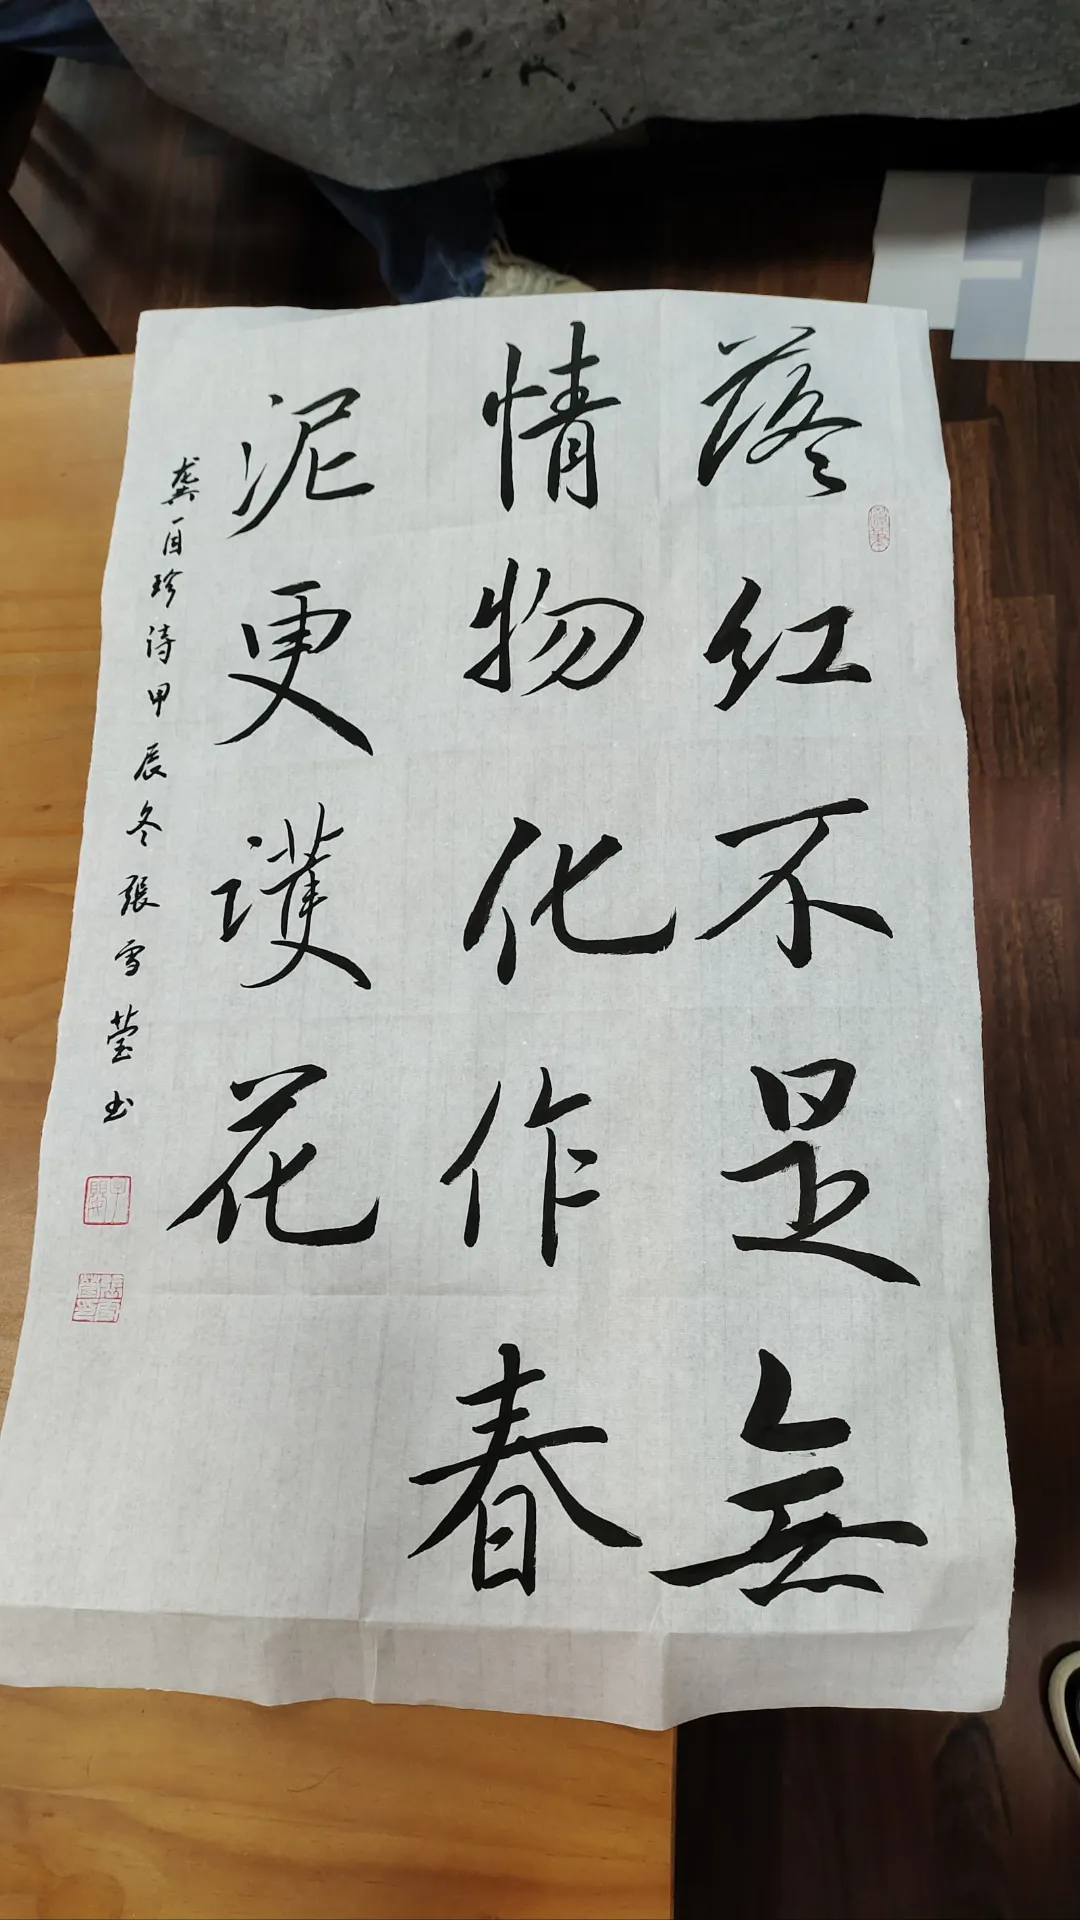 落红不是無
情物化作春
泥更護花
龚自珍诗甲辰冬張雪莹书